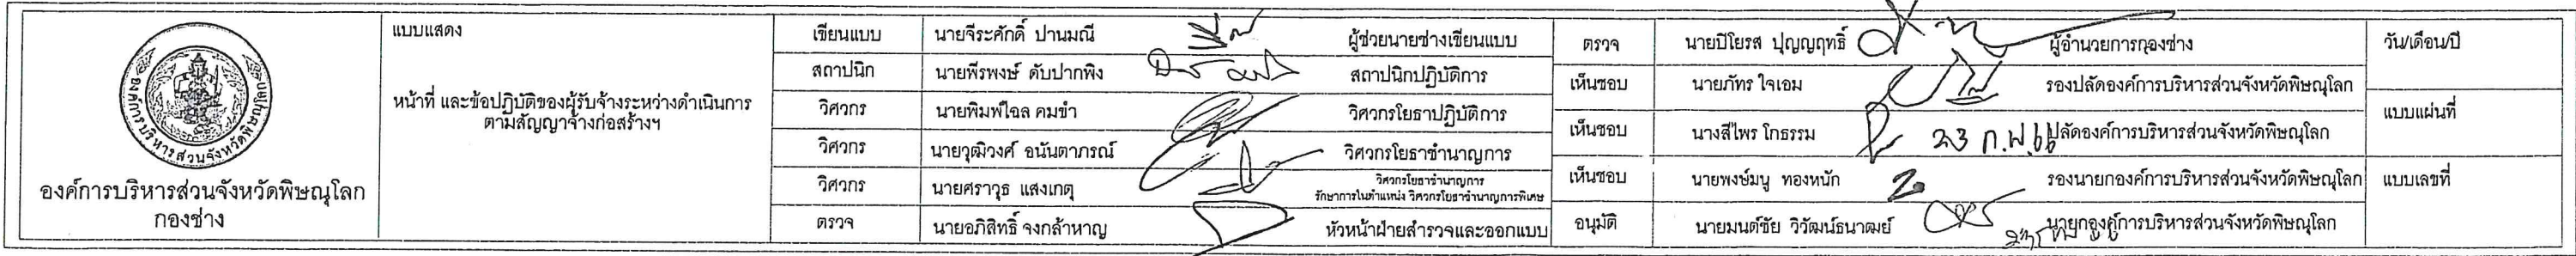 องค์การบริหารส่วนจังหวัดพิษณุโลก
องค์การบริหารส่วนจังหวัดพิษณุโลก
กองช่าง
แบบแสดง
หน้าที่ และข้อปฏิบัติของผู้รับจ้างระหว่างดำเนินการ
ตามสัญญาจ้างก่อสร้างฯ
เขียนแบบ นายจีระศักดิ์ ปานมณี ผู้ช่วยนายช่างเขียนแบบ
สถาปนิก นายพีรพงษ์ ดับปากพิง สถาปนิกปฏิบัติการ
วิศวกร นายพิมฬไฉล คมขำ วิศวกรโยธาปฏิบัติการ
วิศวกร นายวุฒิวงศ์ อนันตาภรณ์ วิศวกรโยธาชำนาญการ
วิศวกร นายศราวุธ แสงเกตุ วิศวกรโยธาชำนาญการ
รักษาการในตำแหน่ง วิศวกรโยธาชำนาญการพิเศษ
ตรวจ นายอภิสิทธิ์ จงกล้าหาญ หัวหน้าฝ่ายสำรวจและออกแบบ
ตรวจ นายปิโยรส ปุญญฤทธิ์ ผู้อำนวยการกองช่าง
เห็นชอบ นายภัทร ใจเอม รองปลัดองค์การบริหารส่วนจังหวัดพิษณุโลก
เห็นชอบ นางสีไพร โกธรรม 23 ก.พ. 66 ปลัดองค์การบริหารส่วนจังหวัดพิษณุโลก
เห็นชอบ นายพงษ์มนู ทองหนัก รองนายกองค์การบริหารส่วนจังหวัดพิษณุโลก
อนุมัติ นายมนต์ชัย วิวัฒน์ธนาฒย์ นายกองค์การบริหารส่วนจังหวัดพิษณุโลก
วัน/เดือน/ปี
แบบแผ่นที่
แบบเลขที่